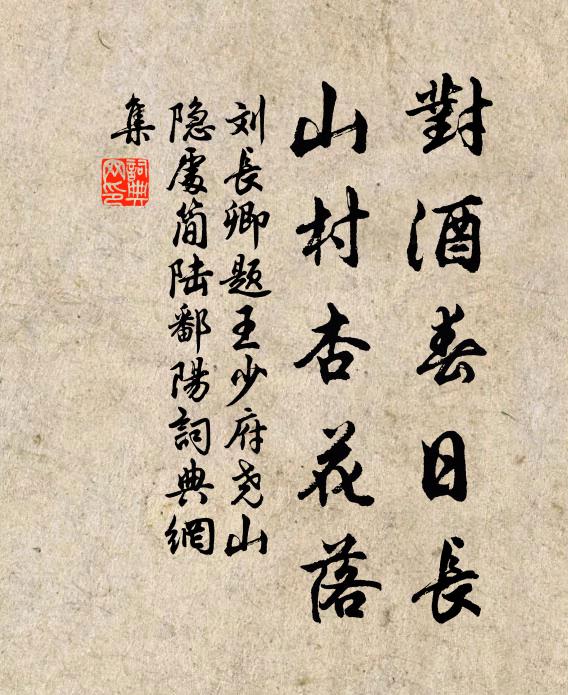 對酒春日長
山村杏花落
刘長卿题王少府尧山
隐處简陆鄱陽詞典網
集
詞典網印